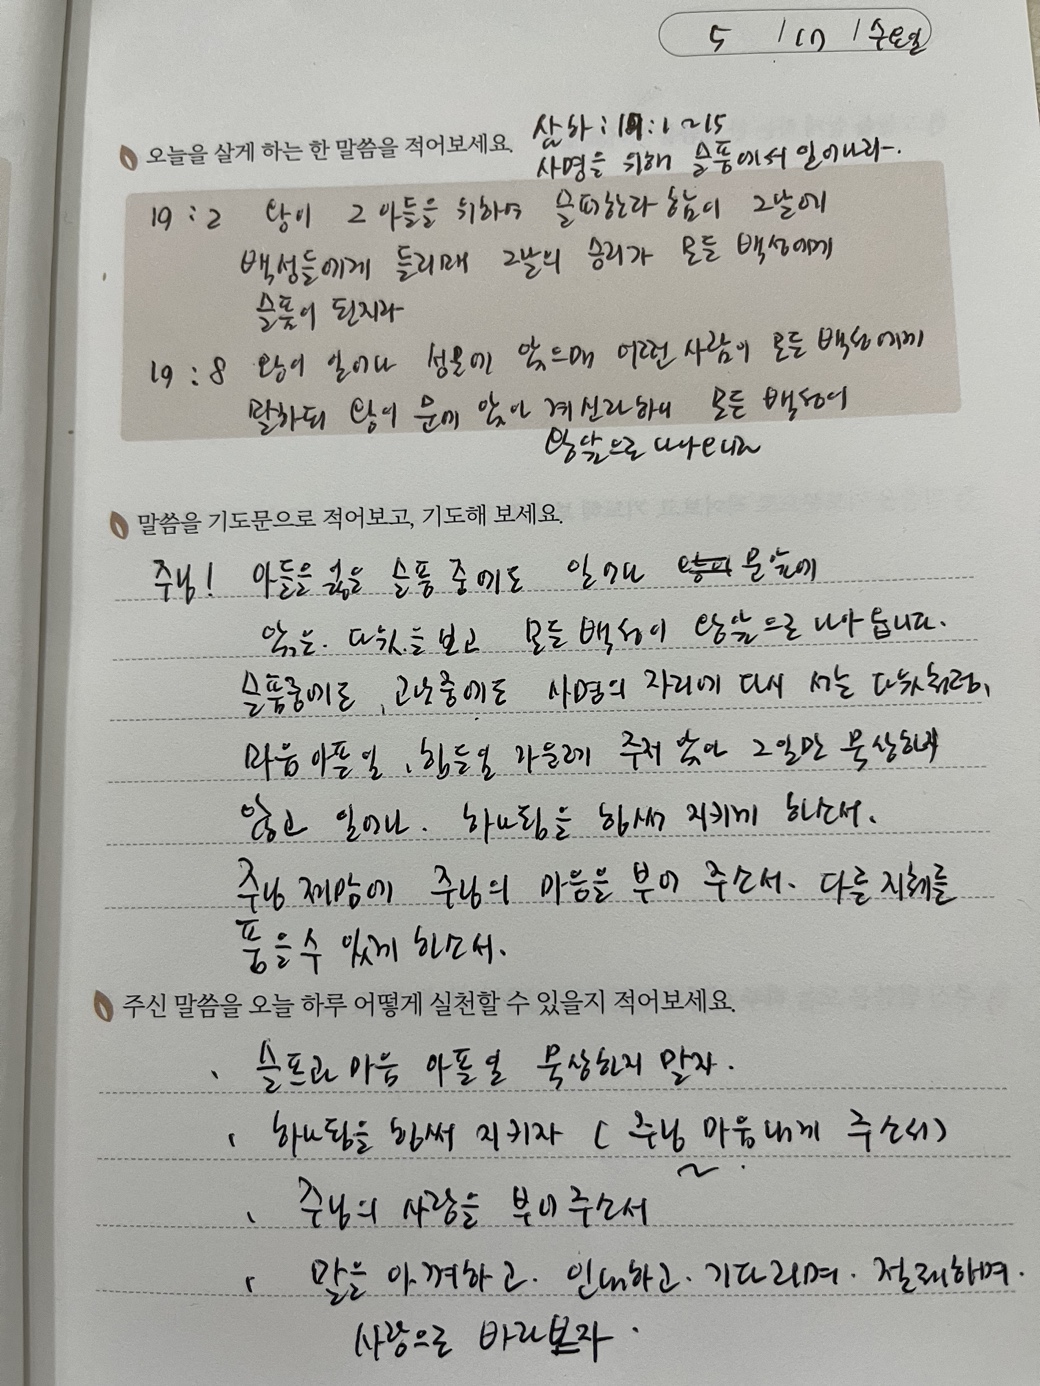 5 / 17 / 수요일
오늘을 살게 하는 한 말씀을 적어보세요.
삼하 : 19 : 1 ~ 15
사명을 위해 슬픔에서 일어나라.
19 : 2 왕이 그 아들을 위하여 슬퍼한다 함이 그날에
백성들에게 들리매 그날의 승리가 모든 백성에게
슬픔이 된지라
19 : 8 왕이 일어나 성문에 앉으매 어떤 사람이 모든 백성에게
말하되 왕이 문에 앉아 계신다하니 모든 백성이
왕앞으로 나아오니라
말씀을 기도문으로 적어보고, 기도해 보세요.
주님! 아들을 잃은 슬픔 중에도 일어나 문앞에
앉은. 다윗을 보고 모든 백성이 왕앞으로 나아 옵니다.
슬픔중에도, 고난중에도 사명의 자리에 다시 서는 다윗처럼,
마음 아픈일, 힘든일 가운데 주저 앉아 그일만 묵상하지
않고 일어나. 하나됨을 힘써 지키게 하소서.
주님 제맘에 주님의 마음을 부어 주소서. 다른 지체를
품을수 있게 하소서.
주신 말씀을 오늘 하루 어떻게 실천할 수 있을지 적어보세요.
、 슬프고 마음 아픈일 묵상하지 말자.
、 하나됨을 힘써 지키자 ( 주님 마음내게 주소서)
、 주님의 사랑을 부어주소서
、 말을 아껴하고. 인내하고. 기다리며. 절제하며.
사랑으로 바라보자.